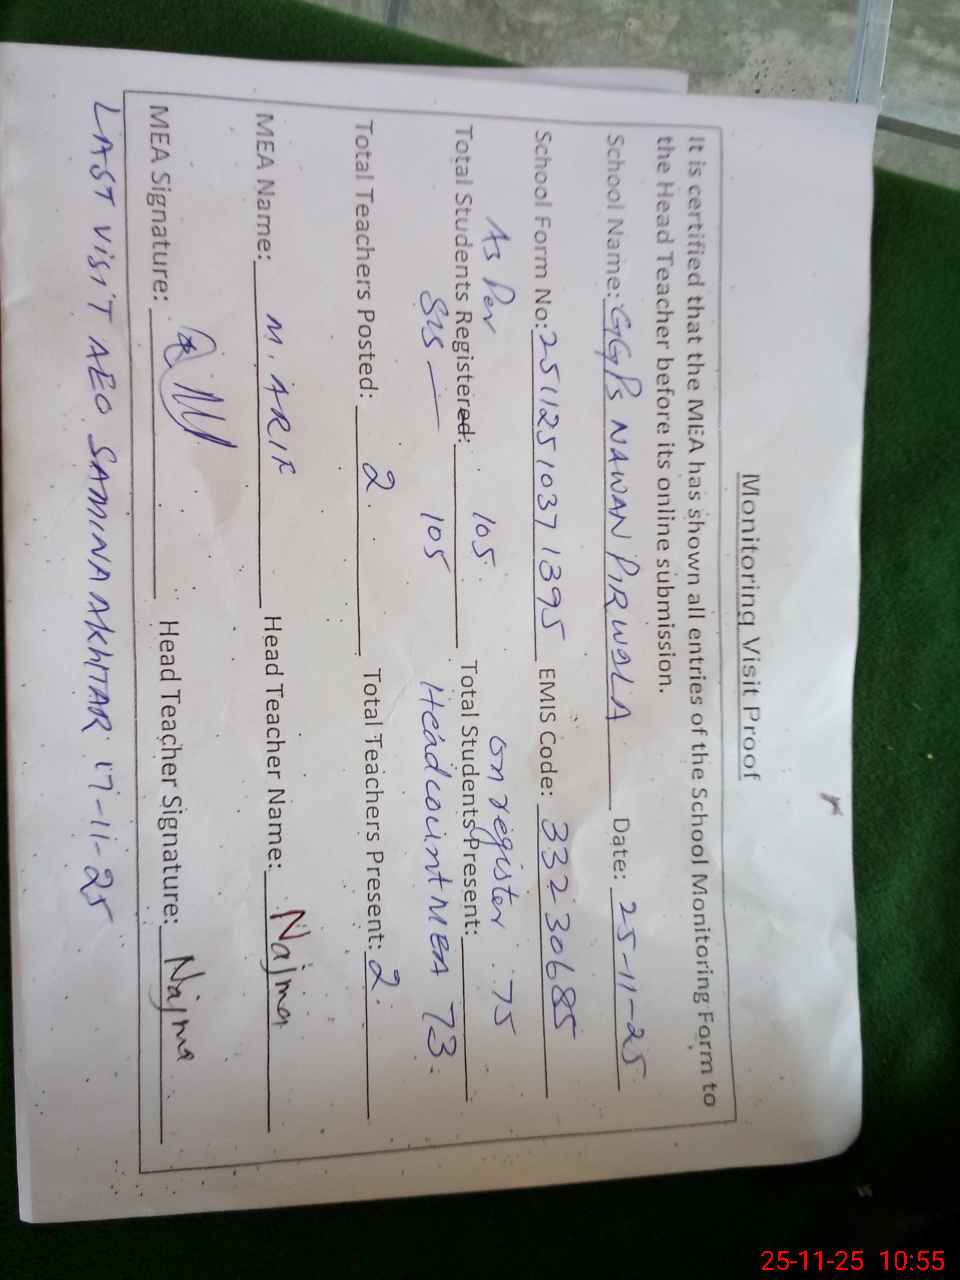 Monitoring Visit Proof
It is certified that the MEA has shown all entries of the School Monitoring Form to
the Head Teacher before its online submission.
School Name: GGPS NAWAN PIRWALA Date: 25-11-25
School Form No: 25112510371395 EMIS Code: 33230685
As Per 105. on register . 75
Total Students Registered: Total Students Present:
SIS — 105 Headcount MEA 73.
Total Teachers Posted: 2. Total Teachers Present: 2.
MEA Name: M. ARIF Head Teacher Name: Najma
MEA Signature: Head Teacher Signature: Najma
LAST VISIT AEO SAMINA AKHTAR 17-11-25
25-11-25 10:55